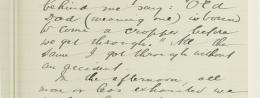 behind me say: "Old
Dad (meaning me) is bound
to come a cropper before
we get through." All the
same I got through without
an accident.
In the afternoon, all
more or less exhausted we